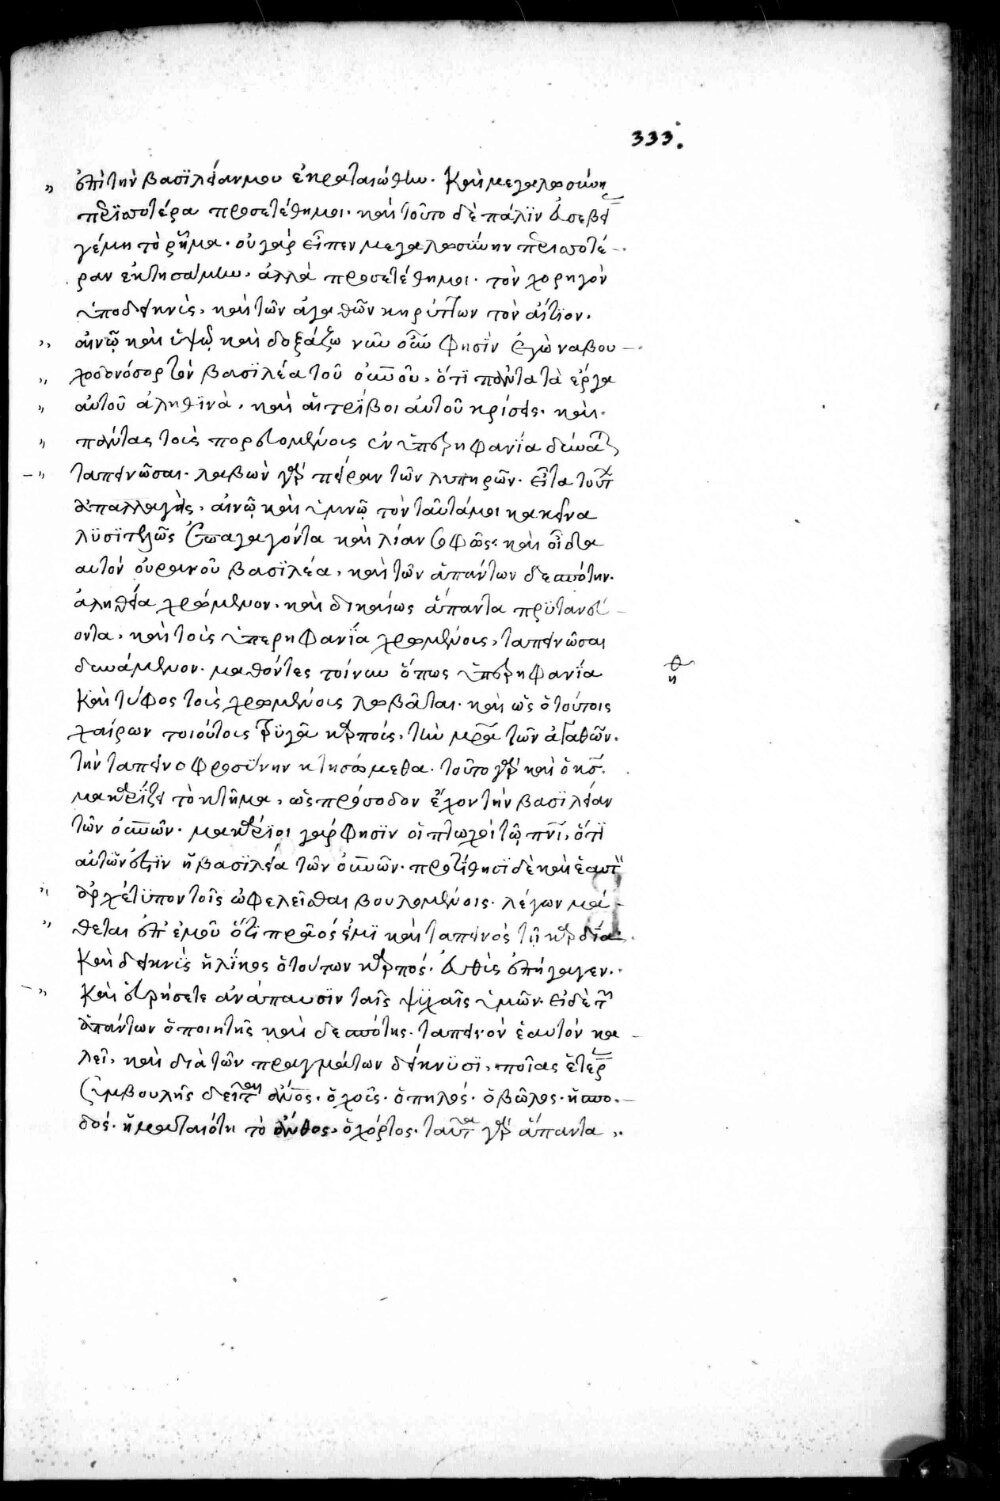 333.
ἐπὶ τὴν βασϊλείαν μου ἐκραταιώθην. καὶ μεγαλωσύνη
περϊσσοτέρα προσετέθη μοι. καὶ τοῦτο δὲ πάλϊν εὐσεβεί
γέμη τὸ ῥῆμα. οὐ γὰρ εἶπεν μεγαλωσύνην περισσοτέ-
ραν ἐκτησάμην. ἀλλὰ προσετέθη μοι. τὸν χορηγὸν
ὑποδεικνὺς, καὶ τῶν ἀγαθῶν κηρύττων τὸν αἴτϊον.
αἰνῶ καὶ ὑψῶ καὶ δοξάζω νῦν οὖν φησὶν ἐγὼ ναβου-
χοδονόσορ τὸν βασϊλέα τοῦ οὐνοῦ, ὅτϊ πάντα τὰ ἔργα
αὐτοῦ ἀληθϊνὰ, καὶ αἱ τρίβοι αὐτοῦ κρίσεις. καὶ
πάντας τοὺς πορευομένους ἐν ὑπερηφανΐα δύναται
ταπεινῶσαι. λαβὼν γὰρ πεῖραν τῶν λυπηρῶν. εἶτα τούτων
ἀπαλλαγεὶς, αἰνῶ καὶ ὑμνῶ τὸν ταῦτά μοι κἀκεῖνα
λϋσϊτελῶς ἐπαγαγόντα καὶ λίαν σοφῶς. καὶ οἶδα
αὐτὸν οὐρανοῦ βασϊλέα, καὶ τῶν ἁπάντων δεσπότην.
ἀληθεία χρώμενον. καὶ δικαίως ἅπαντα πρϋτανεύ-
οντα. καὶ τοὺς ὑπερηφανΐα χρωμένους, ταπεινῶσαι
δυνάμενον. μαθόντες τοίνυν ὅπως ὑπερηφανΐα
θη
καὶ τύφος τοὺς χρωμένους λωβᾶται. καὶ ὡς ὁ τούτοις
χαίρων τοιούτους τρϋγᾶ καρποὺς, τὴν μρα τῶν ἀγαθῶν.
τὴν ταπεινοφροσύνην κτησώμεθα. τοῦτο γὰρ καὶ ὁ κς.
μακαρΐζει τὸ κτῆμα, ὡς πρόσοδον ἔχον τὴν βασϊλείαν
τῶν οὐνῶν. μακάρϊοι γάρ φησϊν οἱ πτωχοὶ τῷ πνι, ὅτϊ
αὐτῶν ἐστϊν ἡ βασϊλεία τῶν οὐνῶν. προτίθησϊ δὲ καὶ ἑαυτὸν
ἀρχέτϋπον τοῖς ὠφελεῖσθαι βουλομένοις. λέγων μά-
θεται ἀπ' ἐμοῦ ὅτϊ πρᾶος εἰμϊ καὶ ταπεινὸς τῆ καρδία.
καὶ δεικνὺς ἡλίκος ὁ τούτων καρπός. εὐθὺς ἐπήγαγεν.
καὶ εὑρήσετε ἀνάπαυσϊν ταῖς ψϋχαῖς ὑμῶν. εἰ δὲ τῶν
ἁπάντων ὁ ποιητὴς καὶ δεσπότης. ταπεινὸν ἑαυτὸν κα-
λεῖ, καὶ διὰ τῶν πραγμάτων δείκνϋσϊ, ποίας ἑτέρας
συμβουλῆς δεῖται ὁ ἄνος. ὁ χοῦς. ὁ πηλὸς. ὁ βῶλος. ἡ σπο-
δὸς. ἡ ματαιότης τὸ ἄνθος. ὁ χόρτος. ταῦτα γὰρ ἅπαντα